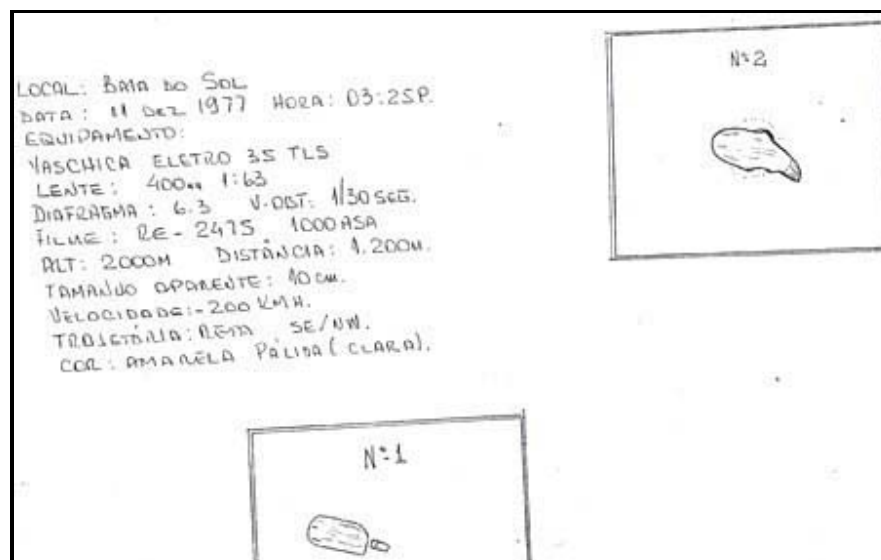 LOCAL: BAIA DO SOL
DATA: 11 DEZ 1977 HORA: 03:25P.
EQUIPAMENTO:
YASCHICA ELETRO 35 TLS
LENTE: 400mm 1:63
DIAFRAGMA: 6.3 V.OBT: 1/30 SEG.
FILME: RE-2475 1000 ASA
ALT: 2000M DISTÂNCIA: 1.200M.
TAMANHO APARENTE: 10 cm.
VELOCIDADE:-200 KMH.
TRAJETÓRIA: RETA SE/NW.
COR: AMARELA PÁLIDA (CLARA).
Nº2
Nº1